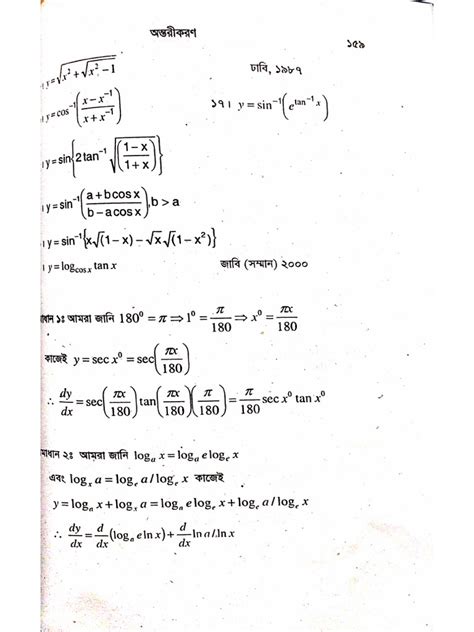 অন্তরীকরণ
১৫৯
। y = √(x² + √(x² − 1))
ঢাবি, ১৯৮৭
। y = cos⁻¹((x − x⁻¹)/(x + x⁻¹))
১৭। y = sin⁻¹(e^(tan⁻¹ x))
। y = sin{2tan⁻¹ √((1 − x)/(1 + x))}
। y = sin⁻¹((a + b cos x)/(b − a cos x)), b > a
। y = sin⁻¹{x√(1 − x) − √x √(1 − x²)}
। y = log_cos x tan x
জাবি (সম্মান) ২০০০
মাধান ১ঃ আমরা জানি 180⁰ = π ⇒ 1⁰ = π/180 ⇒ x⁰ = πx/180
কাজেই y = sec x⁰ = sec(πx/180)
∴ dy/dx = sec(πx/180) tan(πx/180)(π/180) = π/180 sec x⁰ tan x⁰
মাধান ২ঃ আমরা জানি logₐ x = logₐ e logₑ x
এবং logₓ a = logₑ a / logₑ x কাজেই
y = logₐ x + logₓ a = logₐ e logₑ x + logₑ a / logₑ x
∴ dy/dx = d/dx (logₐ e ln x) + d/dx ln a / ln x